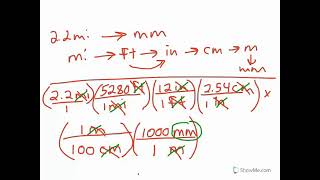 2.2mi → mm
mi → ft → in → cm → m
mm
(2.2mi/1)(5280ft/1mi)(12in/1ft)(2.54cm/1in) x
(1m/100cm)(1000mm/1m)
ShowMe.com